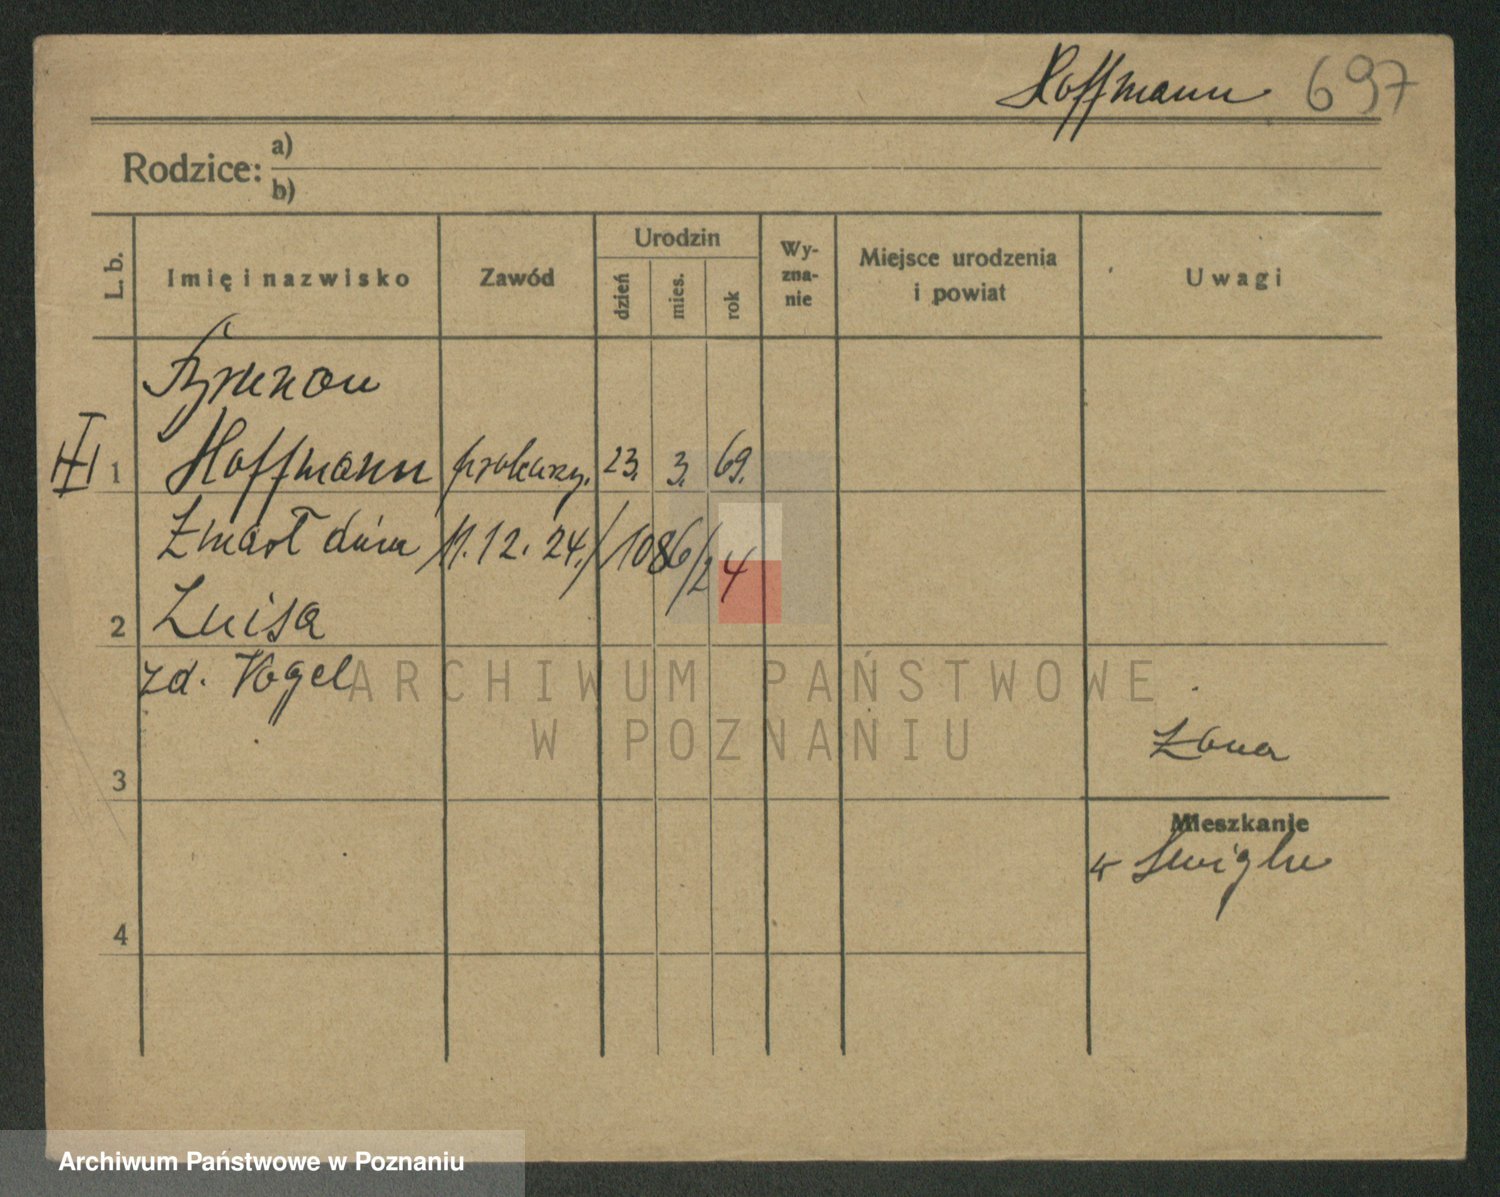 Hoffmann 697
Rodzice: a)
b)
L. b.
Imię i nazwisko
Zawód
Urodzin
dzień
mies.
rok
Wy-
zna-
nie
Miejsce urodzenia
i powiat
Uwagi
Brunon
III 1 Hoffmann prokurzy. 23. 3. 69.
Zmarł dnia 11.12.24./1086/24
2 Luisa
zd. Vogel
3
żona
Mieszkanie
w
4
ARCHIWUM PAŃSTWOWE
W POZNANIU
Archiwum Państwowe w Poznaniu